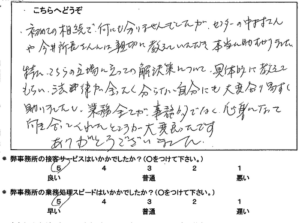 こちらへどうぞ
初めての相続で、何も分りませんでしたが、センターの中村さん
や今井所長さんには親切に教えていただき、本当に助かりました。
特に、こちらの立場に立っての解決策について、具体的に教えて
もらい、法律は全く分らない自分にも大変
助かりました。業務全てが、事務的でなく、親身になって
付き合ってくれたところが大変良かったです
ありがとうございました。
* 弊事務所の接客サービスはいかかでしたか？(○をつけて下さい。)
5 4 3 2 1
良い 普通 悪い
* 弊事務所の業務処理スピードはいかかでしたか？(○をつけて下さい。)
5 4 3 2 1
早い 普通 遅い